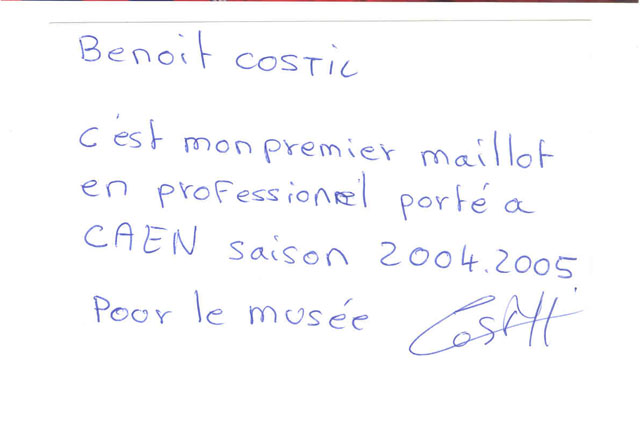 Benoit COSTIL
c'est mon premier maillot
en professionnel porté a
CAEN saison 2004.2005
Pour le musée Costil